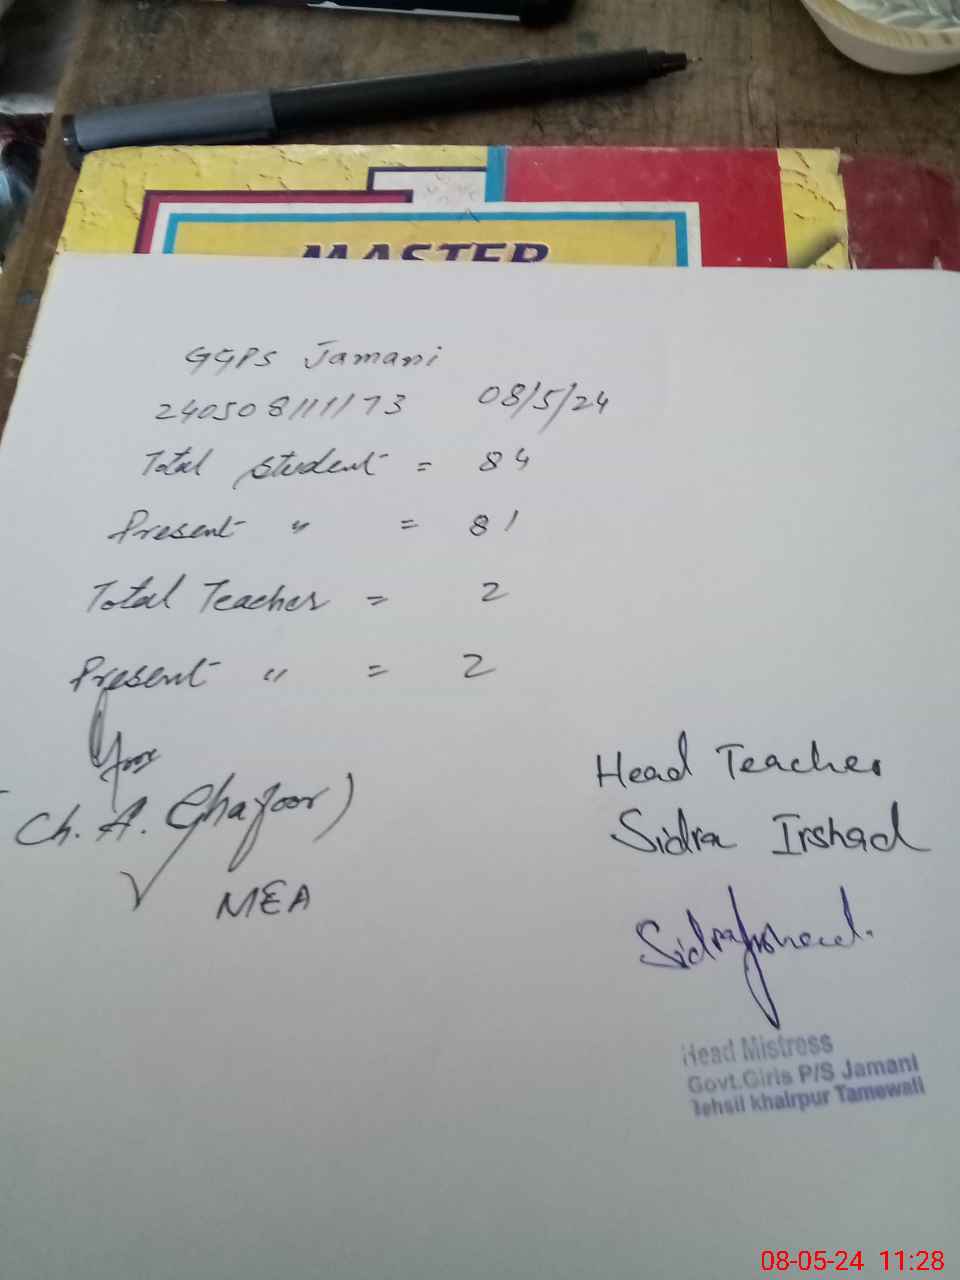 MASTER
GGPS Jamani
240508111173 08/5/24
Total student = 84
Present " = 81
Total Teacher = 2
Present " = 2
(Ch. A. Ghafoor)
MEA
Head Teacher
Sidra Irshad
Sidra Irshad.
Head Mistress
Govt.Girls P/S Jamani
Tehsil khairpur Tamewali
08-05-24 11:28